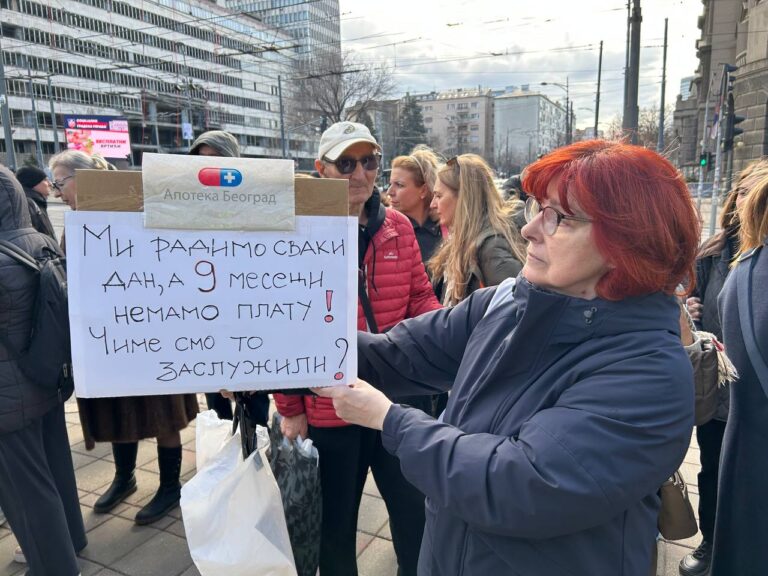 Апотека Београд
Ми радимо сваки
дан, а 9 месеци
немамо плату!
Чиме смо то
заслужили?